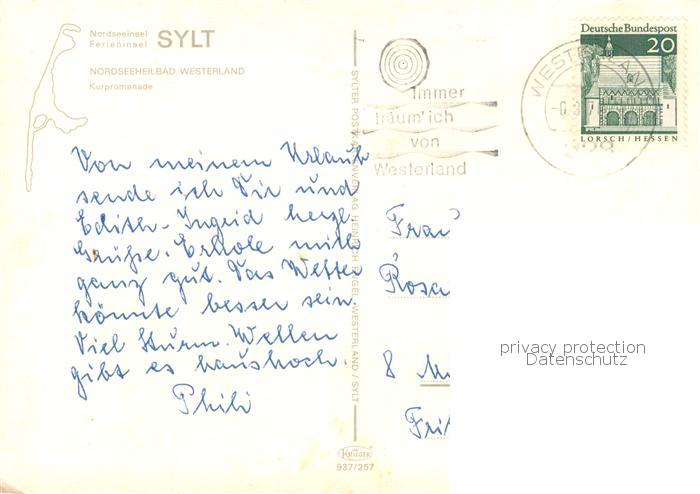 Nordseeinsel
Ferieninsel SYLT
NORDSEEHEILBAD WESTERLAND
Kurpromenade
Von meinem Urlaub
sende ich Dir und
Edith-Ingrid herzl.
Grüße. Erhole mich
ganz gut. Das Wetter
könnte besser sein.
Viel Sturm. Wellen
gibt es haushoch.
Phili
WESTERLAND / SYLT
KRÜGER
937/257
Immer
träum' ich
von
Westerland
Deutsche Bundespost
20
LORSCH/HESSEN
Frau
Rosa
8
privacy protection
Datenschutz